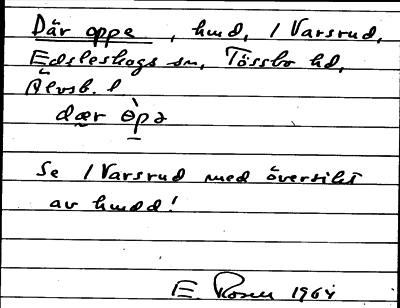 Där oppe, hmd, / Varsrud,
Edsleskogs sn, Tössbo hd,
Älvsb. l
dær òpə
Se / Varsrud med översikt
av hmdd!
E. Rosen 1964